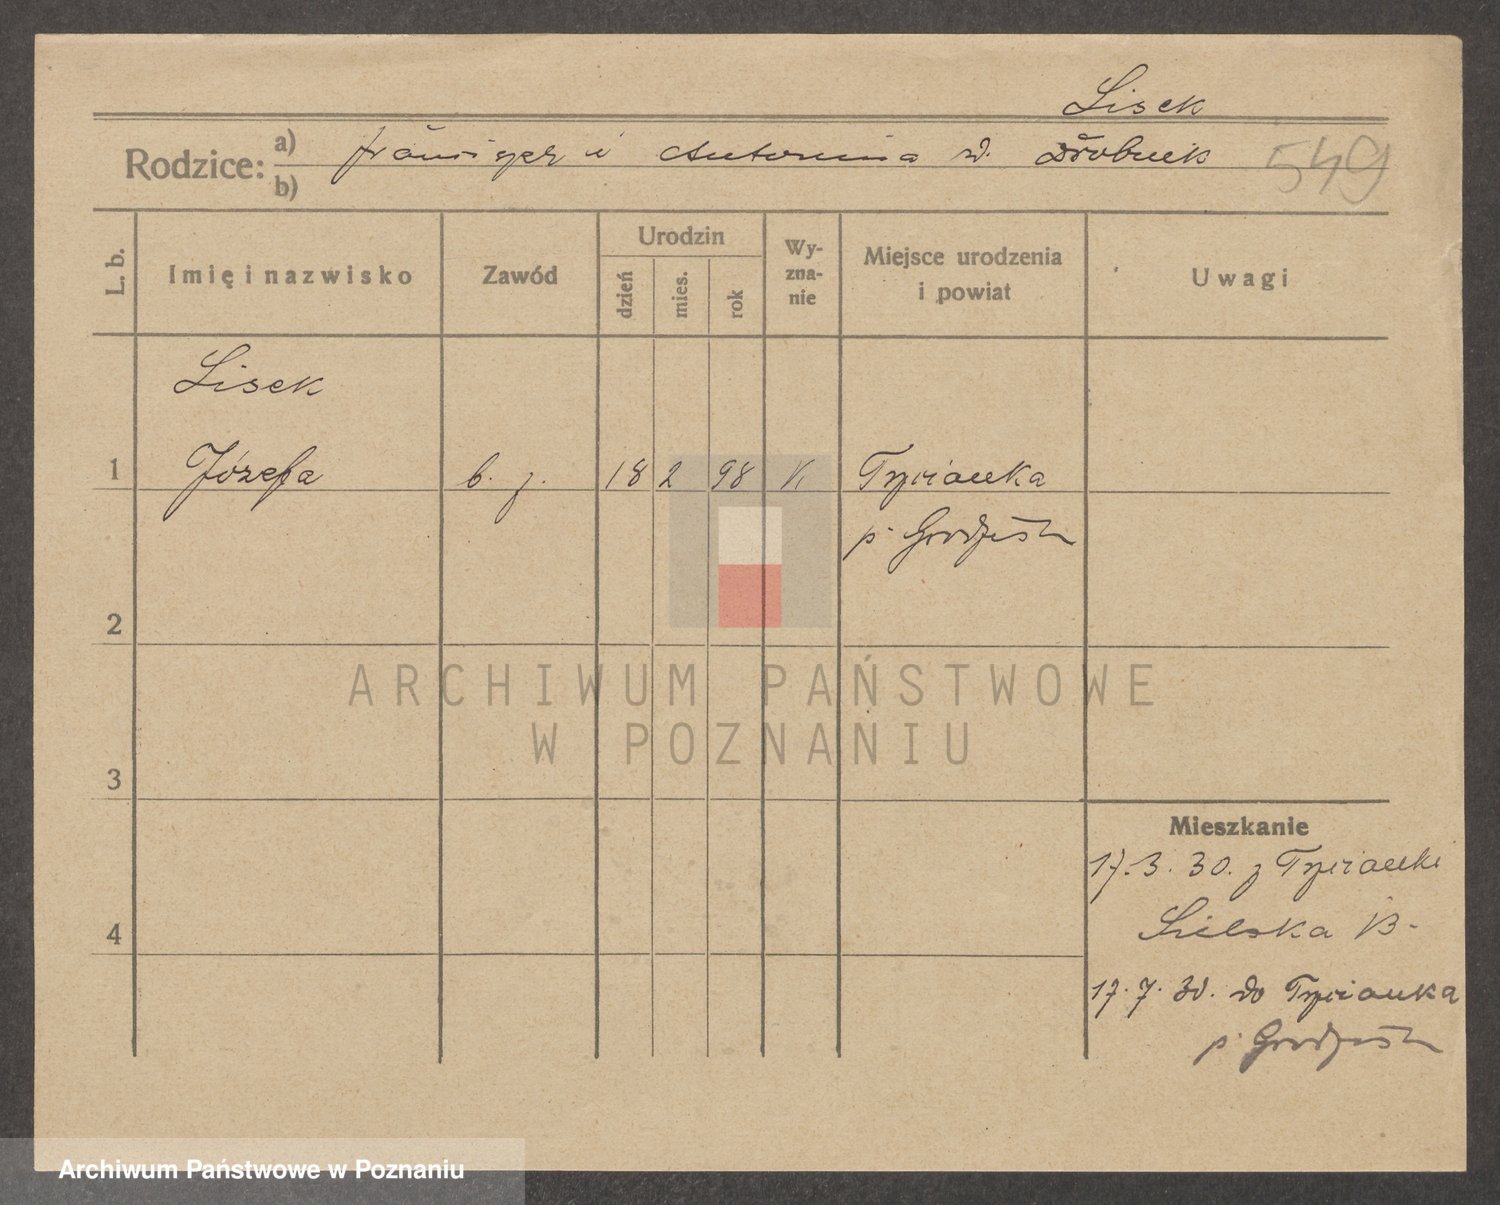 Lisek
Rodzice: a) Franciszek i Antonina d. Drobnik
b)
549
L. b.
Imię i nazwisko
Zawód
Urodzin
dzień
mies.
rok
Wy-
zna-
nie
Miejsce urodzenia
i powiat
Uwagi
Lisek
1 Józefa b. z. 18 2 98 K Trzcianka
p. Grodzisk
2
ARCHIWUM PAŃSTWOWE
W POZNANIU
3
Mieszkanie
17.3.30. z Trzcianki
4
13.
17.7.30. do Trzcianka
p. Grodzisk
Archiwum Państwowe w Poznaniu